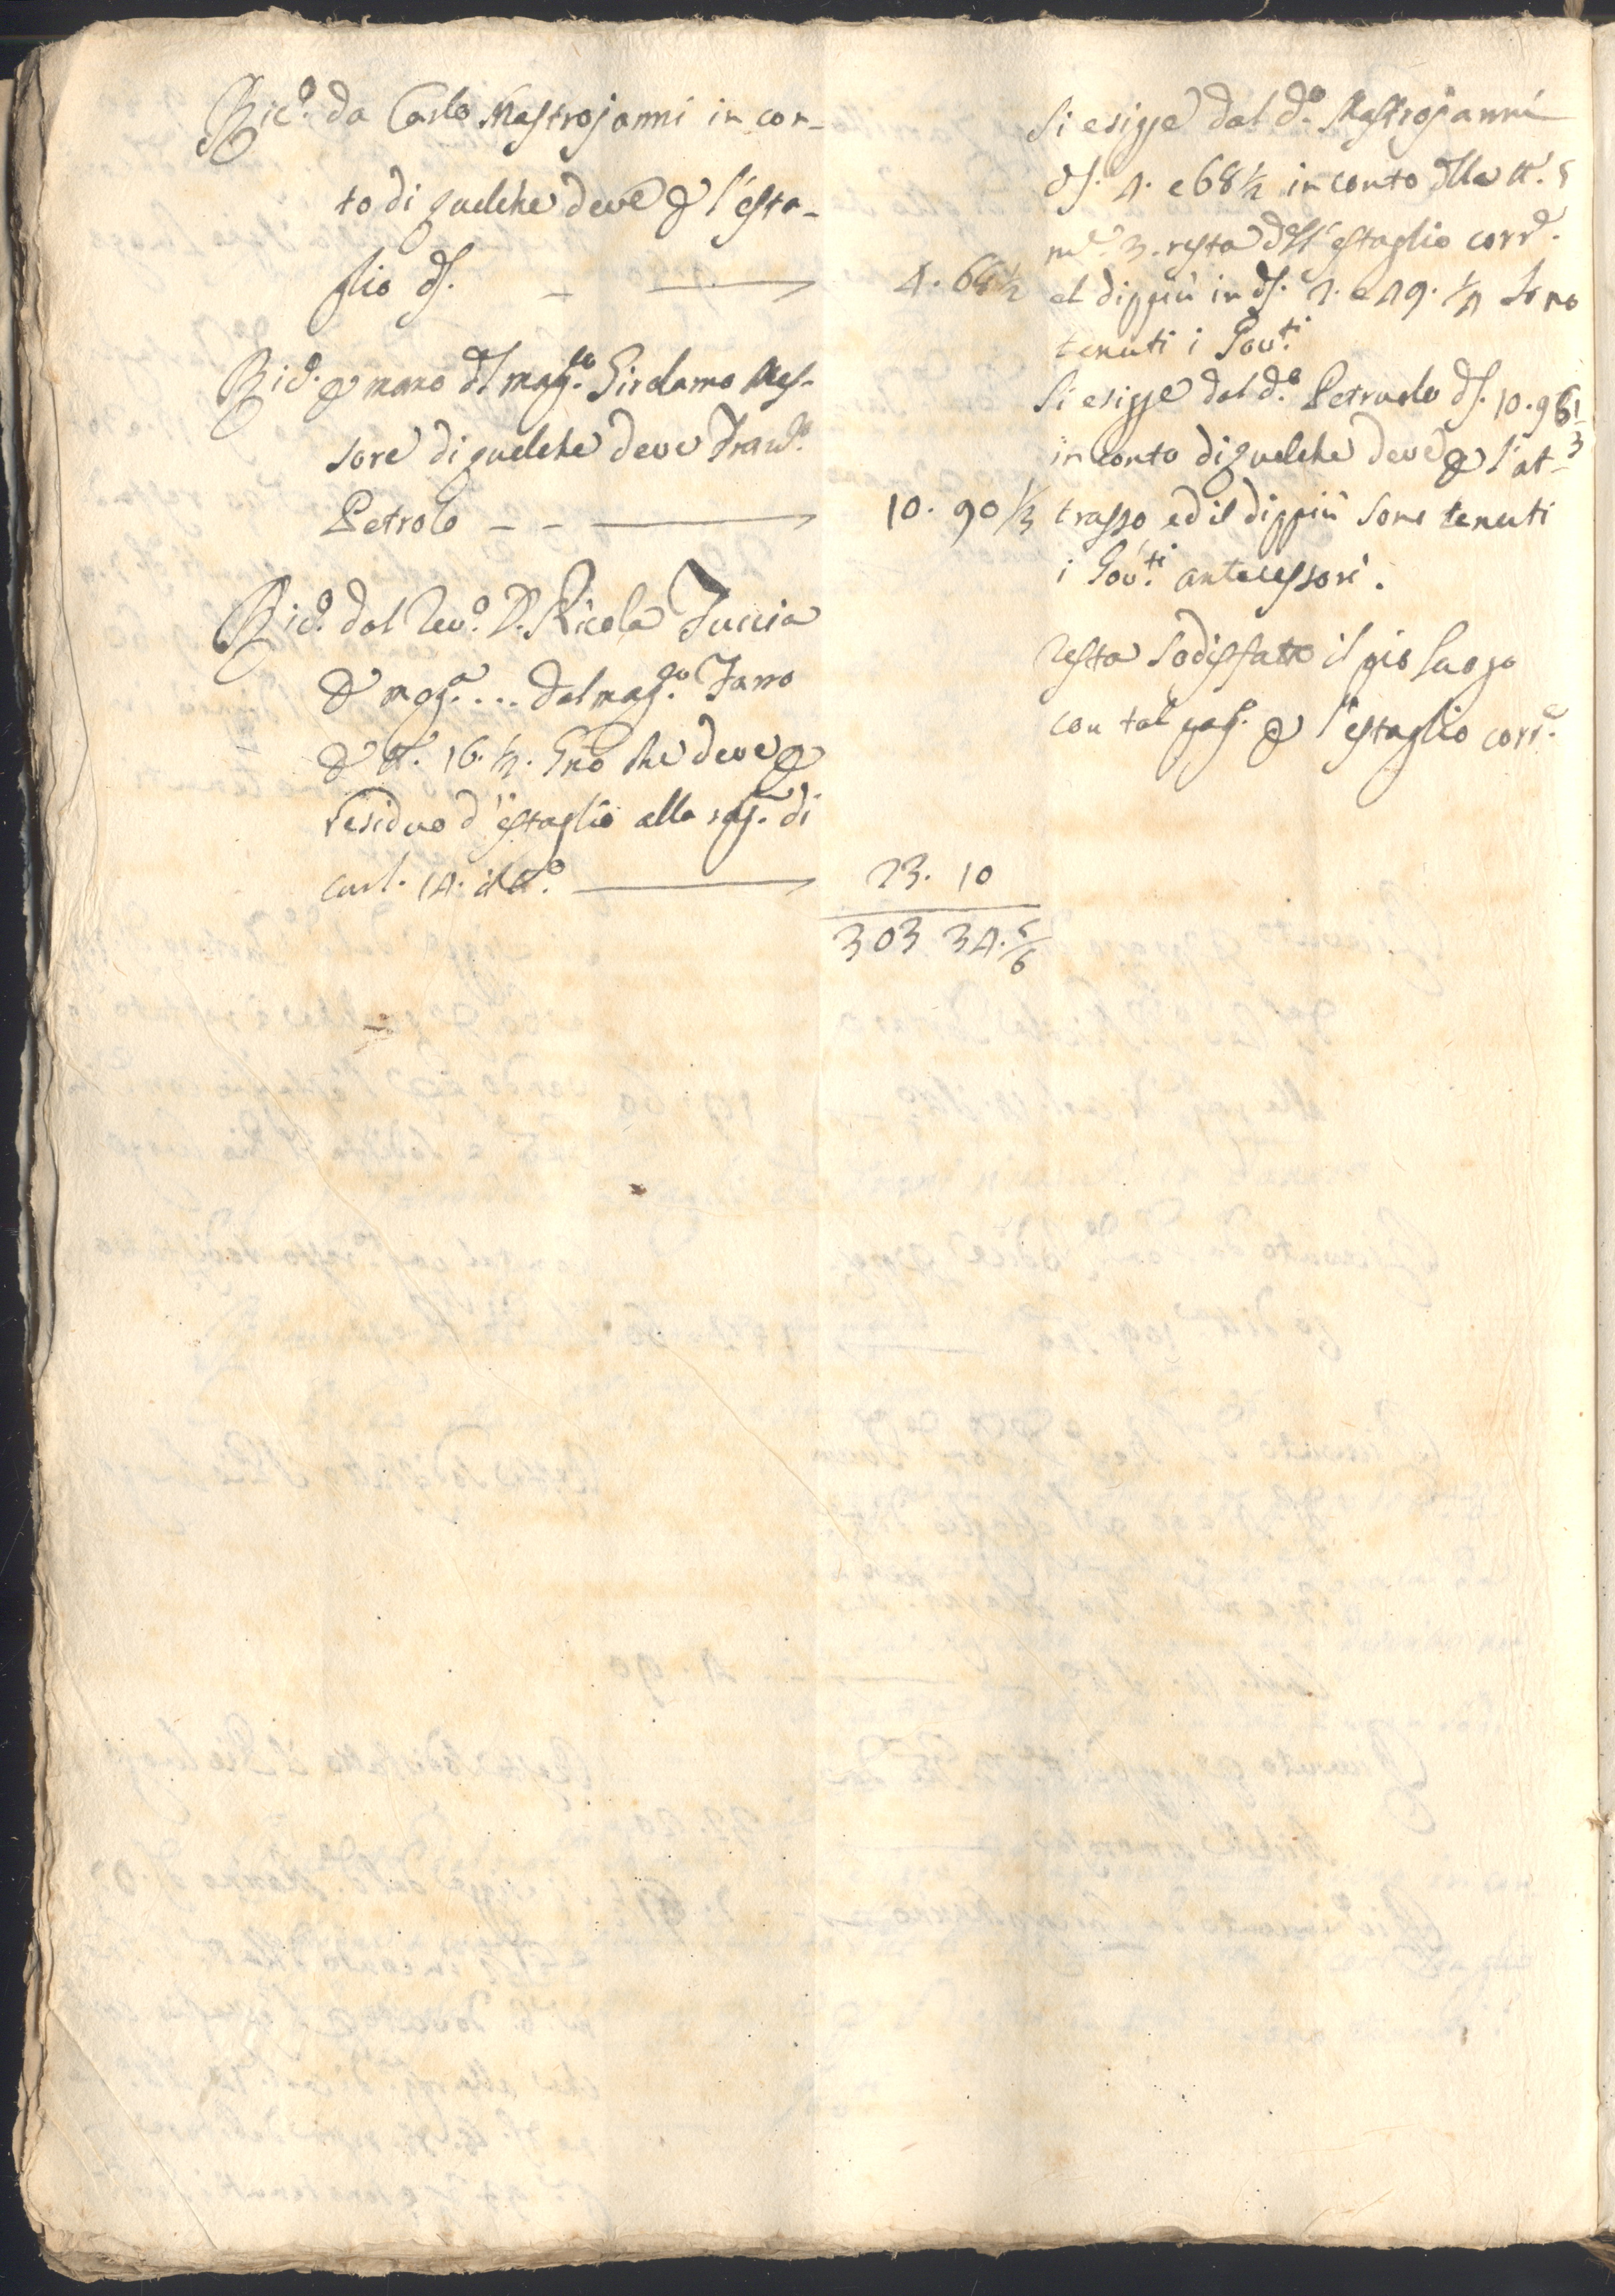 Ric.o da Carlo Mastrojanni in con-
to di quelche deve p l'esta-
glio d.
4. 68 1/2
Ric.o p mano del mag.co Girolamo Mes-
sore di quelche deve Fran.co
Petrolo
10. 90 1/3
Ric.o dal Rev.o D. Nicola Tuccia
p mag.a ... dal mag.co Fano
p tt. 16. 1/2. Gño che deve p
residuo d'estaglio alla rag.e di
carl. 14. il tt.o
23. 10
303 34. 5/6
Si esigge dal d.o Mastrojanni
d. 4. e 68 1/2 in conto della tt.
m.e 3. resta dell'estaglio corr.e
el dippiù in d. 2. e 49. 1/4 sono
tenuti i Gov.ti
Si esigge dal d.o Petruolo d. 10. 96 1/3
in conto di quelche deve p l'at-
trasso ed il dippiù sono tenuti
i Gov.ti antecessori.
Resta sodisfatto il pio luogo
con tal pag.o p l'estaglio corr.e